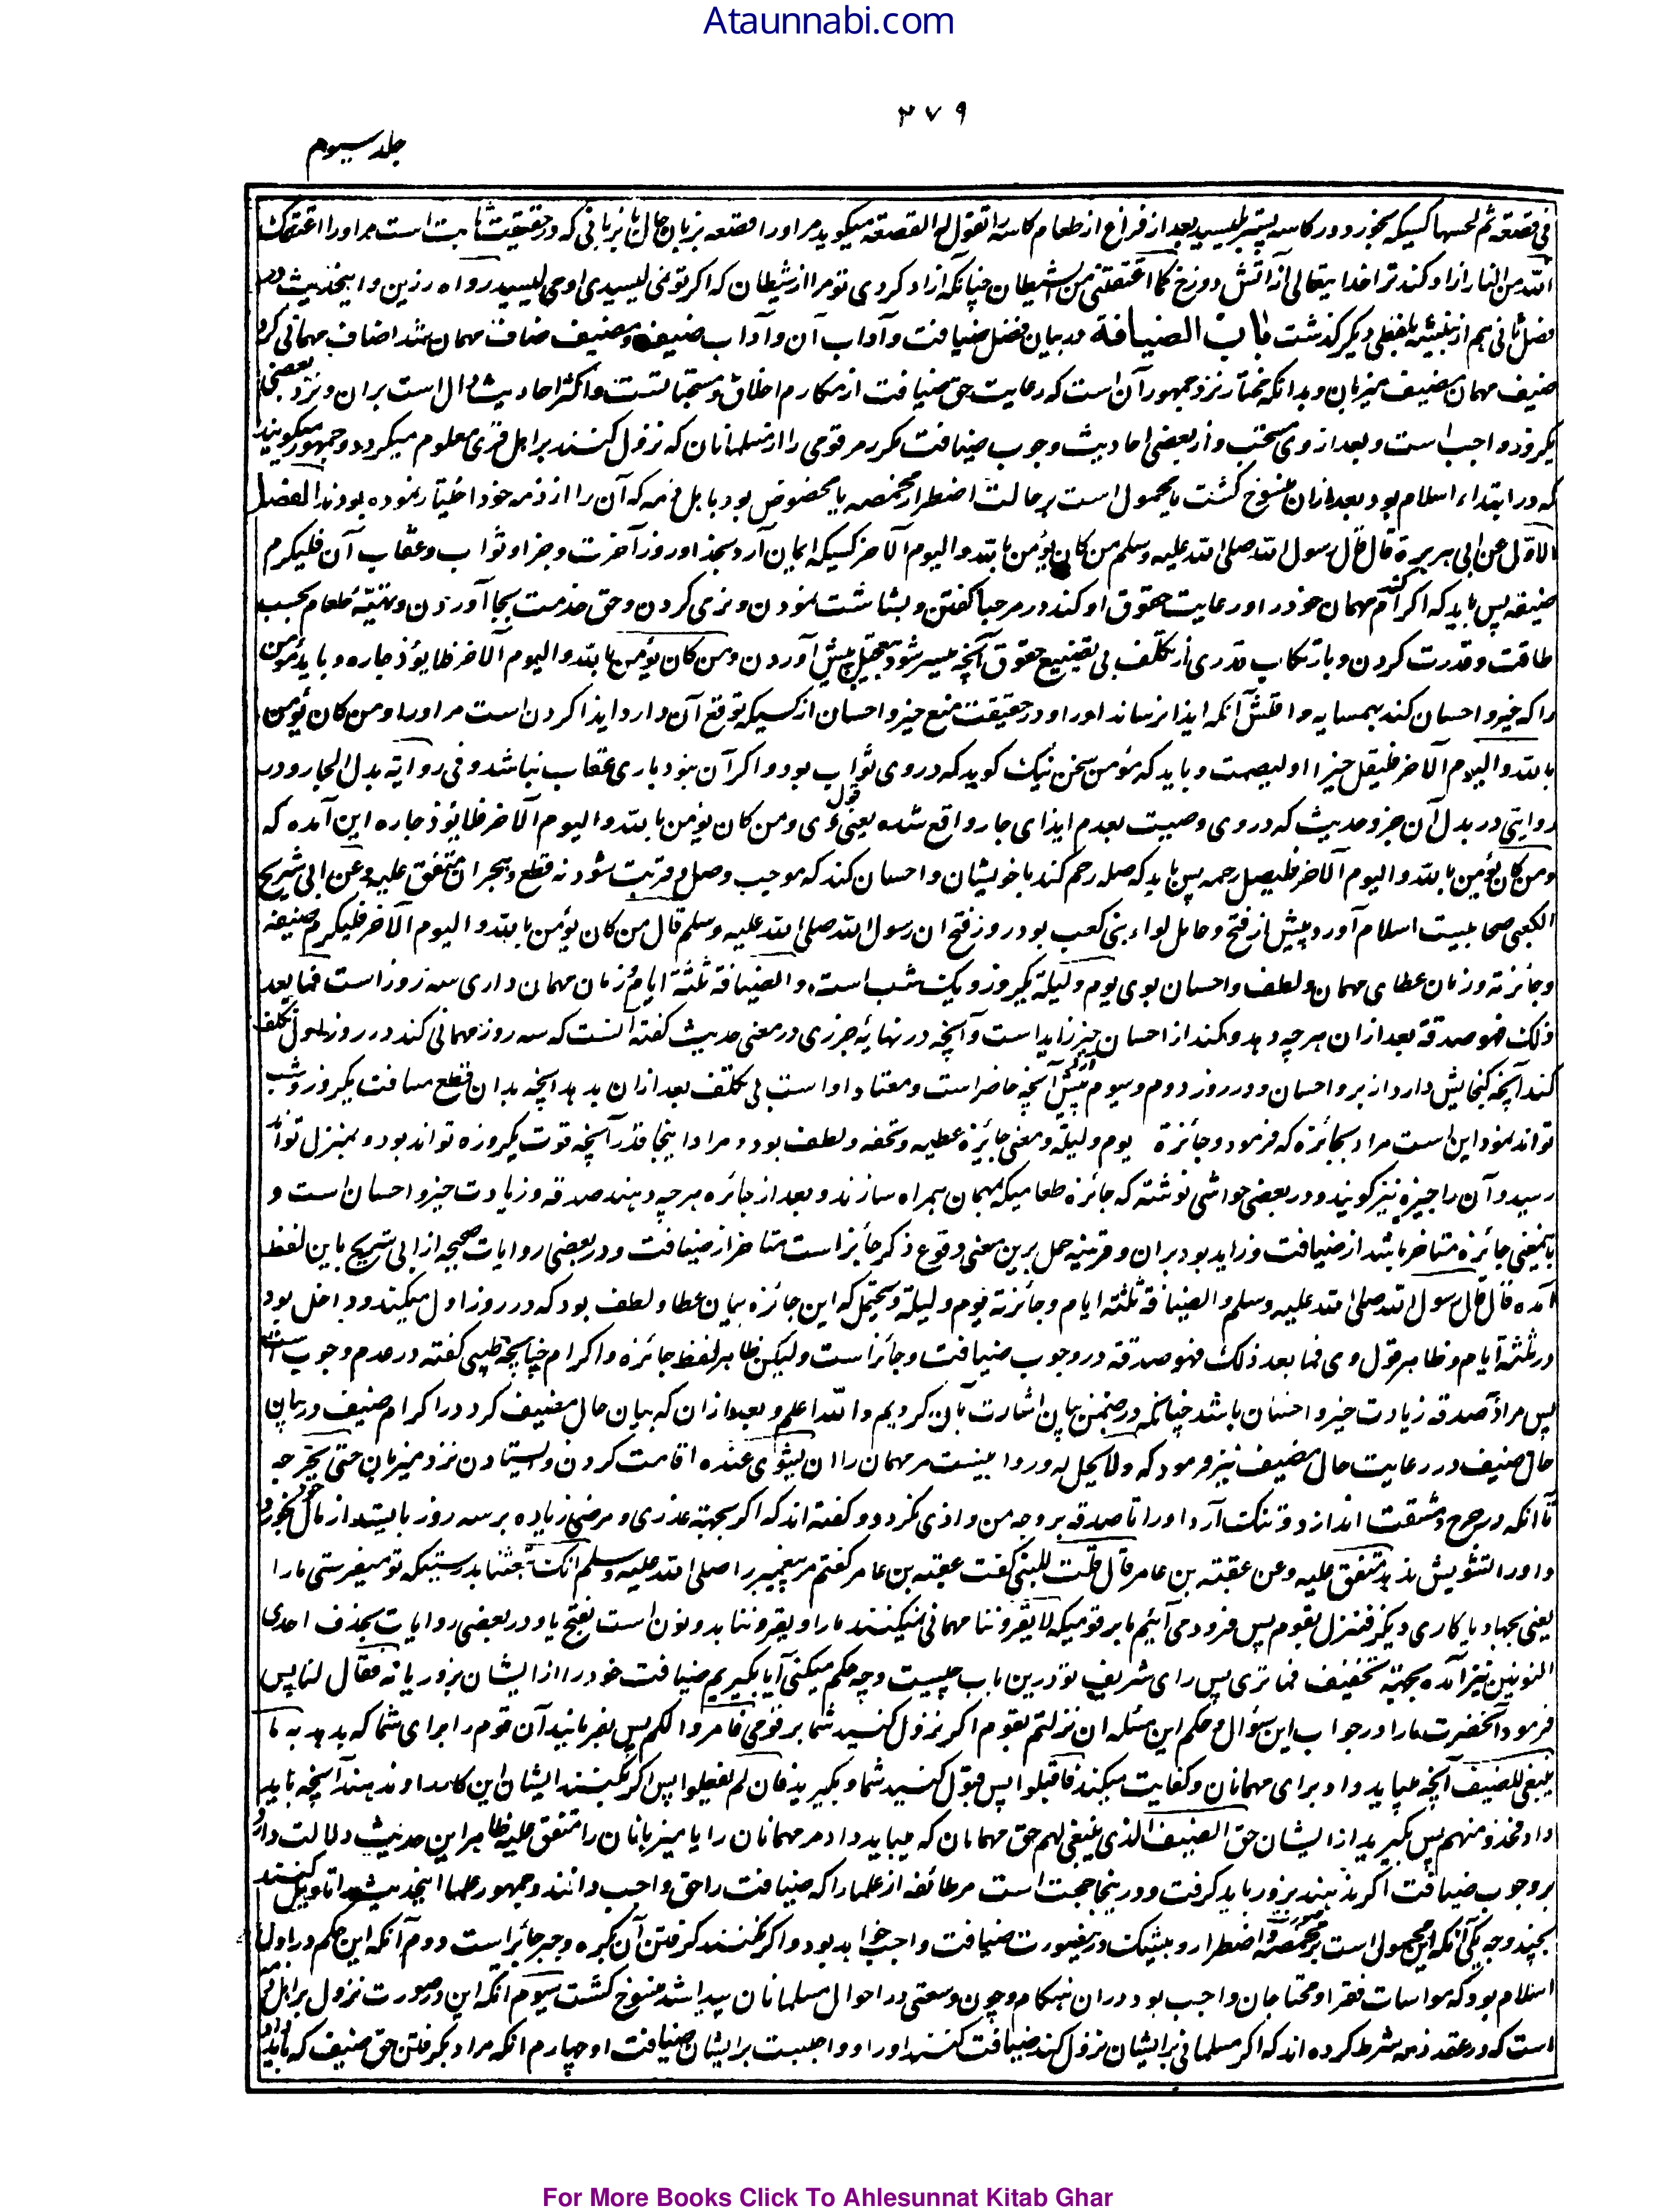 Ataunnabi.com
۳۷۹
جلد سیوم
فی قصعة ثم لحسها کسیکه بخورد در کاسه پستر بلیسد بعد از فراغ از طعام کاسه را تقول له القصعة میگوید مر او را قصعه بزبان حال یا بزبانی که در حقیقت ثابت است مر او را اعتقک
الله من النار ازاد کند ترا خدایتعالی از آتش دوزخ کما اعتقتنی من الشیطان چنانکه ازاد کردی تو مرا از شیطان که اکر تو نمی لیسیدی او می لیسید رواه رزین و اینحدیث در
فصل ثانی هم از نبیشه بلفظی دیکر کذشت باب الضیافة در بیان فضل ضیافت و آداب آن و آداب ضیف و مضیف ضاف مهمان شد اضاف مهمانی کرد
ضیف مهمان مضیف میزبان و بدانکه مختار نزد جمهور آن است که رعایت حق ضیافت از مکارم اخلاق و مستحبات است و اکثر احادیث دال است بران و نزد بعضی
یکروز واجب است و بعد از وی مستحب و از بعضی احادیث وجوب ضیافت مکرر مر قومی را از مسلمانان که نزول کنند بر اهل قری معلوم میکردد و جمهور میکویند
که در ابتداء اسلام بود بعد ازان منسوخ کشت یا محمول است بر حالت اضطرار مخمصه یا مخصوص بود باهل ذمه که آن را از ذمه خود اختیار نموده بودند الفصل
الاول عن ابی هریرة قال قال رسول الله صلی الله علیه وسلم من کان یؤمن بالله والیوم الآخر کسیکه ایمان آرد بخدا و روز آخرت و جزا و ثواب و عقاب آن فلیکرم
ضیفه پس باید که اکرام کند مهمان خود را و رعایت حقوق او کند در مرحبا کفتن و بشاشت نمودن و نرمی کردن و حق خدمت بجا آوردن و تهنیئه طعام بحسب
طاقت و قدرت کردن و بارتکاب قدری از تکلف بی تضییع حقوق آنچه میسر شود بتعجیل پیش آوردن ومن کان یؤمن بالله والیوم الآخر فلا یؤذ جاره و باید مؤمن
را که خیر و احسان کند بهمسایه و اقلش آنکه ایذا نرساند او را و در حقیقت منع خیر و احسان از کسیکه توقع آن دارد ایذا کردن است مر او را ومن کان یؤمن
بالله والیوم الآخر فلیقل خیرا او لیصمت و باید که مؤمن سخن نیک کوید که در وی ثواب بود و اکر آن نبود باری عقاب نباشد و فی روایة بدل الجار و در
روایتی در بدل آن جزو حدیث که در وی وصیت بعدم ایذای جار واقع شده یعنی قول وی ومن کان یؤمن بالله والیوم الآخر فلا یؤذ جاره این آمده که
ومن کان یؤمن بالله والیوم الآخر فلیصل رحمه پس باید که صله رحم کند با خویشان و احسان کند که موجب وصل و قربت شود نه قطع و هجران متفق علیه وعن ابی شریح
الکعبی صحابیست اسلام آورد پیش از فتح و حامل لواء بنی کعب بود روز فتح ان رسول الله صلی الله علیه وسلم قال من کان یؤمن بالله والیوم الآخر فلیکرم ضیفه
وجائزته و زمان عطای مهمان و لطف و احسان بوی یوم ولیلة یکروز و یک شب است والضیافة ثلثة ایام زمان مهمان داری سه روز است فما بعد
ذلک فهو صدقة بعد ازان هر چه دهد و بکند از احسان چیز زاید است و آنچه در نهایهٔ جزری در معنی حدیث کفته آنست که سه روز مهمانی کند در روز اول تکلف
کند آنچه کنجایش دارد از بر و احسان و در روز دوم و سیوم پیش آرد آنچه حاضر است و معتاد او است بی تکلف بعد ازان بدهد آنچه بدان قطع مسافت یکروز و شب
تواند نمود این است مراد بجائزه که فرمود وجائزة یوم ولیلة و معنی جایزه عطیه و تحفه و لطف بود و مراد اینجا قدر آنچه قوت یکروزه تواند بود و بمنزل تواند
رسید و آن را جیزه نیز کویند و در بعضی حواشی نوشته که جائزه طعامیکه بمهمان همراه سازند و بعد از جائزه هر چه دهند صدقه و زیادت خیر و احسان است و
باینمعنی جائزه متاخر باشد از ضیافت و زاید بود بران و قرینه حمل برین معنی وقوع ذکر جائز است متاخر از ضیافت و در بعضی روایات صحیحه از ابی شریح باین لفظ
آمده قال قال رسول الله صلی الله علیه وسلم والضیافة ثلثة ایام وجائزته یوم ولیلة و یحتمل که این جائزه بیان عطا و لطف بود که در روز اول میکند و داخل بود
در ثلثة ایام و ظاهر قول وی فما بعد ذلک فهو صدقة در وجوب ضیافت و جائز است ولیکن ظاهر لفظ جائزه و اکرام چنانچه طیبی کفته در عدم وجوب است
پس مراد صدقه زیادت خیر و احسان باشد چنانکه در ضمن بیان اشارت بآن کردیم والله اعلم و بعد ازان که بیان حال مضیف کرد در اکرام ضیف در بیان
حال ضیف در رعایت حال مضیف نیز فرمود که ولا یحل له و روا نیست مر مهمان را ان یثوی عنده اقامت کردن و ایستادن نزد میزبان حتی یحرجه
تا آنکه در حرج و مشقت اندازد و تنکت آرد او را تا صدقه بر وجه من و اذی نکردد و کفته اند که اکر بجهة عذری و مرضی زیاده بر سه روز بایستد از مال خود بخورد
و او را تشویش ندهد متفق علیه وعن عقبة بن عامر قال قلت للنبی کفت عقبه بن عامر کفتم مر پیغمبر را صلی الله علیه وسلم انک تبعثنا بدرستیکه تو میفرستی ما را
یعنی بجهاد یا کاری دیکر فننزل بقوم پس فرود می آئیم ما بر قومیکه لا یقروننا مهمانی نمیکنند ما را و یقروننا بدو نون است بفتح یا و در بعضی روایات بحذف احدی
النونین نیز آمده بجهة تخفیف فما تری پس رای شریف تو درین باب چیست و چه حکم میکنی آیا بکیریم ضیافت خود را از ایشان بزور یا نه فقال لنا پس
فرمود آنحضرت مارا در جواب این سؤال و حکم این مسئله ان نزلتم بقوم اکر نزول کنید شما بر قومی فامروا لکم پس بفرمایند آن قوم را برای شما که بدهد به ما
ینبغی للضیف آنچه میباید داد برای مهمانان و کفایت میکند فاقبلوا پس قبول کنید شما و بکیرید فان لم یفعلوا پس اکر نکنند ایشان این کار را و ندهند آنچه باید
داد فخذوا منهم پس بکیرید از ایشان حق الضیف الذی ینبغی لهم حق مهمانان که میباید داد مر مهمانان را یا میزبانان را متفق علیه ظاهر این حدیث دلالت دارد
بر وجوب ضیافت اکر ندهند بزور باید کرفت و درینجا حجت است مر طائفه از علما را که ضیافت را حق واجب دانند و جمهور علما اینحدیث را تاویل کنند
بچند وجه یکی آنکه این محمول است بر صورت مخمصه و اضطرار و بیشک درینصورت ضیافت واجب خواهد بود و اکر نکنند کرفتن آن بکره و جبر جائز است دوم آنکه این حکم در اول
اسلام بود که مواسات فقرا و محتاجان واجب بود دران هنکام و چون وسعتی در احوال مسلمانان پیدا شد منسوخ کشت سیوم آنکه این در صورت نزول بر اهل ذمه
است که در عقد ذمه شرط کرده اند که اکر مسلمانی بر ایشان نزول کند ضیافت کنند او را و واجبست بر ایشان ضیافت او چهارم آنکه مراد بکرفتن حق ضیف که باید داد
For More Books Click To Ahlesunnat Kitab Ghar